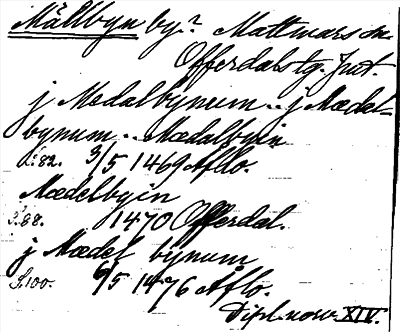 Mällbyn by? Mattmars sn.
Offerdals tg. Jmt.
j Medalbynum .. j Mædel-
bynum .. Mædalbyin
S. 82. 3/5 1469 Afllo.
Mædelbyin
S. 88. 1470 Offerdal.
j Mædel bynum
S. 100. 6/5 1476 Aflo.
Dipl. norv. XIV.